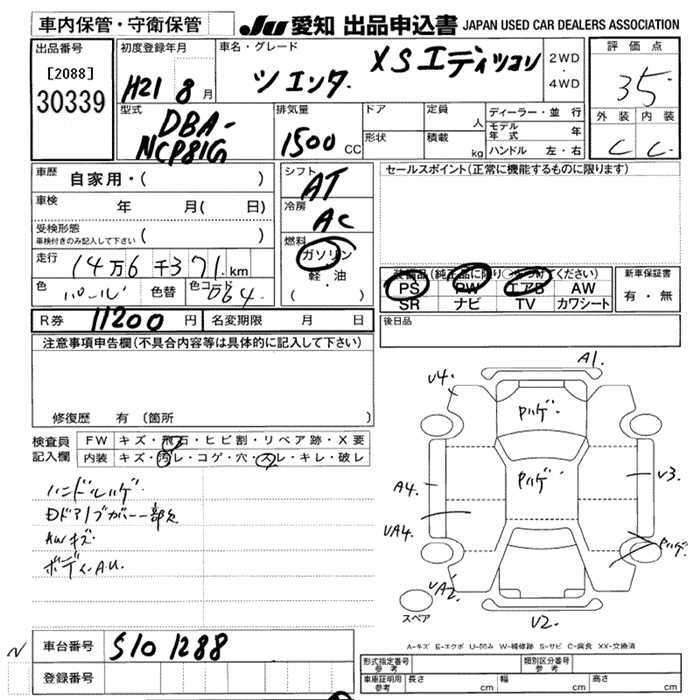 車内保管・守衛保管
JU 愛知 出品申込書 JAPAN USED CAR DEALERS ASSOCIATION
出品番号
[2088]
30339
初度登録年月
H21 8 月
車名・グレード
シエンタ XSエディション
2WD
・
4WD
評価点
3.5
外装 内装
C C
型式
DBA-
NCP81G
排気量
1500 CC
ドア
形状
定員 人
積載 kg
ディーラー・並行
モデル年式 年
ハンドル 左・右
車歴 自家用・( )
車検 年 月( 日)
受検形態
車検付きのみ記入して下さい ( )
走行 14万6千371km
色 パール 色替 色コード 064
シフト AT
冷房 AC
燃料 ガソリン
軽・油
( ・ )
セールスポイント(正常に機能するものに限ります)
装備品(純正品に限り○をつけてください)
PS PW エアB AW
SR ナビ TV カワシート
新車保証書
有・無
R券 11200 円 名変期限 月 日
後日品
注意事項申告欄(不具合内容等は具体的に記入して下さい)
修復歴 有(箇所 )
検査員記入欄
FW キズ・飛石・ヒビ割・リペア跡・X要
内装 キズ・汚レ・コゲ・穴・スレ・キレ・破レ
ハンドルハゲ
Dドアノブカバー一部欠
AWキズ
ボディA.U.
A1.
V4.
Pハゲ
Pハゲ
A4.
V3.
VA4.
Pハゲ
VA2.
V2.
スペア
A-キズ E-エクボ U-凹み W-補修跡 S-サビ C-腐食 XX-交換済
車台番号 S10 1288
登録番号
形式指定番号
参考
類別区分番号
参考
車庫証明用
参考
長さ cm 幅 cm 高さ cm